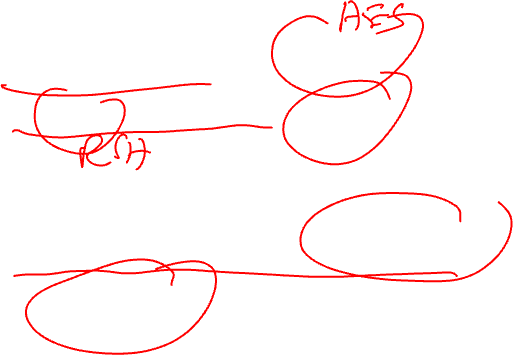 AES
RSH